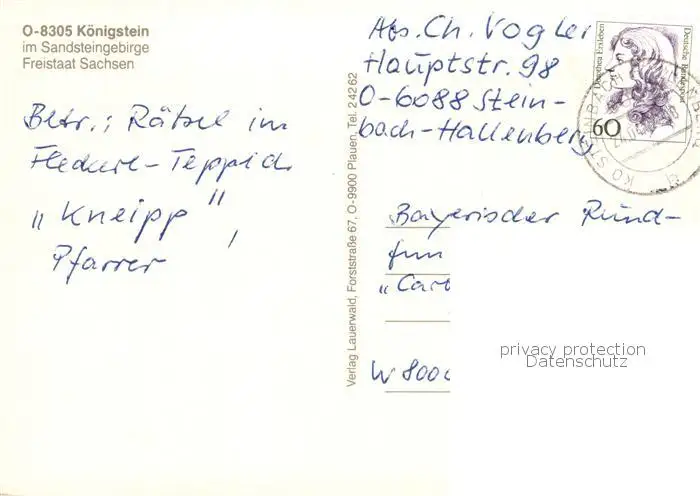 O-8305 Königstein
im Sandsteingebirge
Freistaat Sachsen
Betr.: Rätsel im
Teppich
„Kneipp"
Pfarrer
Verlag Lauerwald, Forststraße 67, O-9900 Plauen, Tel. 24262
Abs. Ch. Vogler
Hauptstr. 98
O-6088 Stein-
bach-Hallenberg
Dorothea Erxleben
Deutsche Bundespost
60
Bayerischer Rund-
fun
W 8000
privacy protection
Datenschutz